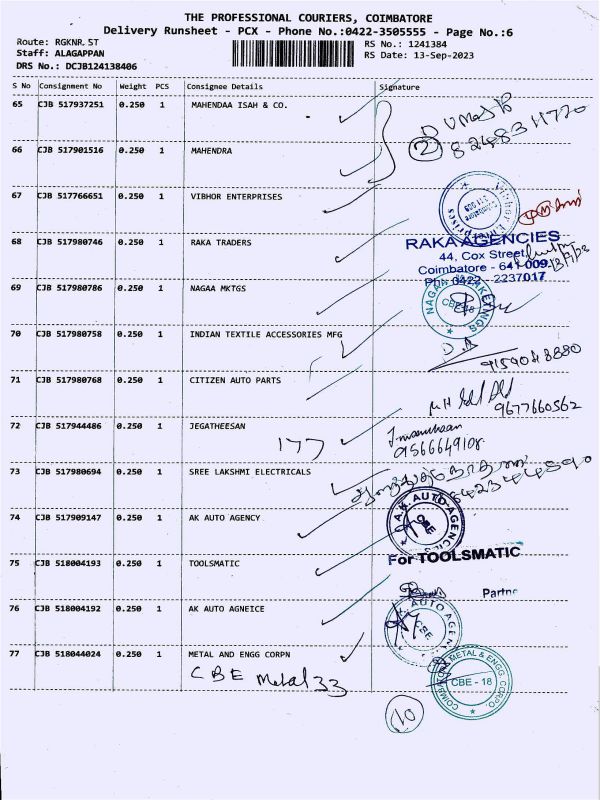 THE PROFESSIONAL COURIERS, COIMBATORE
Delivery Runsheet - PCX - Phone No.:0422-3505555 - Page No.:6
Route: RGKNR ST
RS No.: 1241384
Staff: ALAGAPPAN
RS Date: 13-Sep-2023
DRS No.: DCJB124138406
S No Consignment No Weight PCS Consignee Details Signature
65 CJB 517937251 0.250 1 MAHENDAA ISAH & CO.
8248311770
66 CJB 517901516 0.250 1 MAHENDRA
2
67 CJB 517766651 0.250 1 VIBHOR ENTERPRISES
Vibhor Enterprises
Coimbatore
68 CJB 517980746 0.250 1 RAKA TRADERS
RAKA AGENCIES
44, Cox Street,
Coimbatore - 641 009.
Ph: 0422 - 2237017
69 CJB 517980786 0.250 1 NAGAA MKTGS
NAGAA MARKETINGS
CBE-18
70 CJB 517980758 0.250 1 INDIAN TEXTILE ACCESSORIES MFG
9159048880
71 CJB 517980768 0.250 1 CITIZEN AUTO PARTS
9677660562
72 CJB 517944486 0.250 1 JEGATHEESAN
177
9566649108
73 CJB 517980694 0.250 1 SREE LAKSHMI ELECTRICALS
74 CJB 517909147 0.250 1 AK AUTO AGENCY
A.K. AUTO AGENCIES
CBE
75 CJB 518004193 0.250 1 TOOLSMATIC
For TOOLSMATIC
76 CJB 518004192 0.250 1 AK AUTO AGNEICE
AUTO AGEN
CBE
77 CJB 518044024 0.250 1 METAL AND ENGG CORPN
CBE Metal 33
COIMBATORE METAL & ENGG. CORPO.
CBE - 18
10